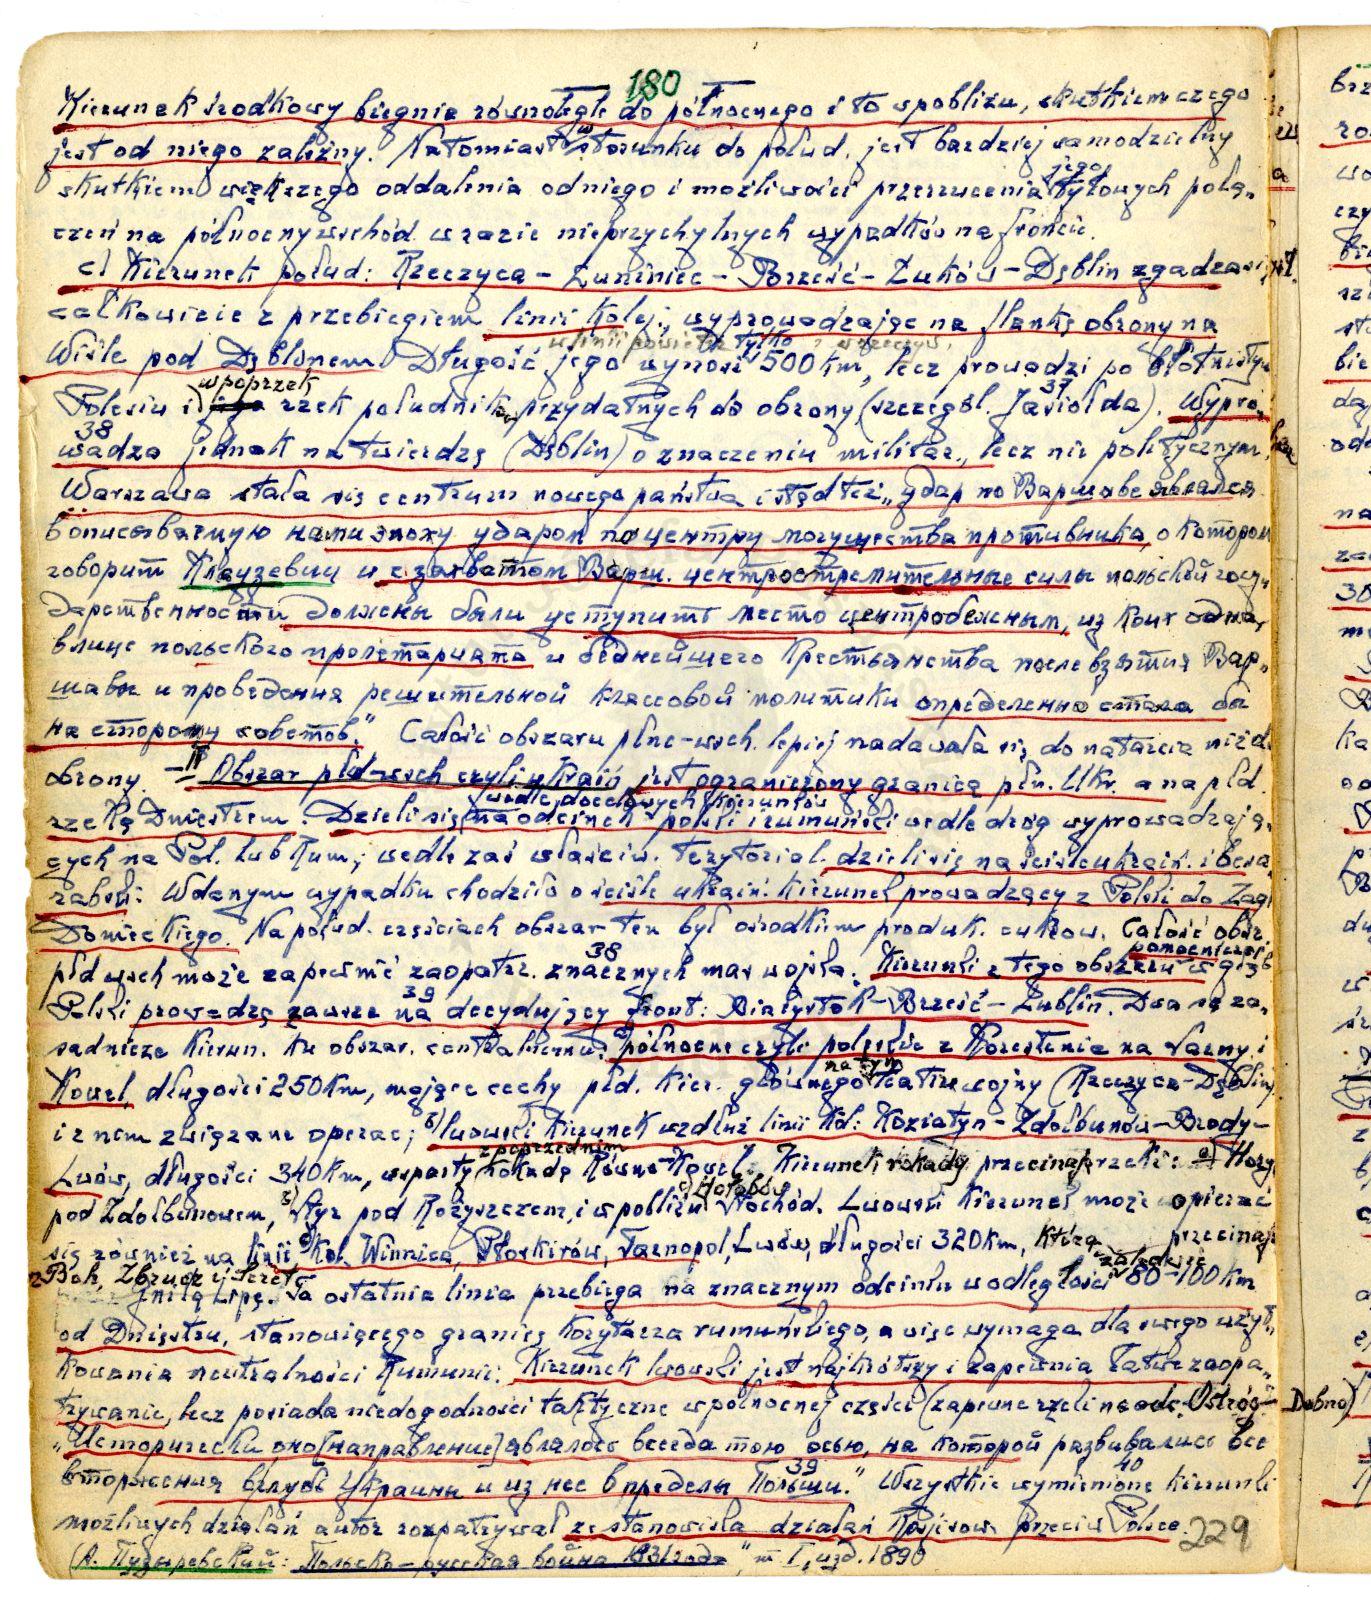 180
Kierunek środkowy biegnie równolegle do północnego i to w pobliżu, skutkiem czego
jest od niego zależny. Natomiast w stosunku do połud. jest bardziej samodzielny
skutkiem większego oddalenia od niego i możliwości przerzucenia jego tyłowych połą-
czeń na północny wschód w razie nieprzychylnych wypadków na froncie.
c) Kierunek połud: Rzeczyca – Łuniniec – Brześć – Łuków – Dęblin zgadza się
całkowicie z przebiegiem linii kolej, wyprowadzając na flankę obrony na
Wiśle pod Dęblinem Długość jego wynosi w linii powietrz tylko 500 km, lecz prowadzi po błotnistym
Polesiu i wpoprzek rzek południk. przydatnych do obrony (szczegól. Jasiołda). 37 Wypro-
wadza 38 jednak na twierdzę (Dęblin) o znaczeniu militar., lecz nie politycznym.
Warszawa stała się centrum nowego państwa i stąd też "удар по Варшаве являлся
в описываемую нами эпоху ударом по центру могущества противника, о котором
говорит Клаузевиц и с захватом Варш. центростремительные силы польской госу-
дарственности должны были уступить место центробежным, из коих одна,
в лице польского пролетариата и беднейшего крестьянства после взятия Вар-
шавы и проведения решительной классовой политики определенно стала бы
на сторону советов." Całość obszaru płnc-wsch. lepiej nadawała się do natarcia niż do
obrony. – II Obszar płd-wsch czyli ukraiń jest ograniczony granicą płn. Ukr. a na płd.
rzeką Dniestrem. Dzieli się wedle docelowych kierunków na odcinek polski i rumuński wedle dróg wyprowadzają-
cych na Pol. lub Rum; wedle zaś właściw. terytorial. dzieli się na ściśle ukraiń. i besa-
rabski. W danym wypadku chodziło o ściśle ukraiń. kierunek prowadzący z Polski do Zagł.
Donieckiego. Na połud. częściach obszar ten był ośrodkiem produk. cukrow. Całość obsz.
płd wsch może zapewnić zaopatrz. znacznych mas wojska. 38 Kierunki z tego obszaru w głąb
Polski prowadzą zawsze na 39 decydujący front: Białystok – Brześć – Lublin. Dwa są za-
sadnicze kierun. ku obszar. centralnemu: a) północne czyli poleskie z Korostenia na Sarny i
Kowel, długości 250 km, mające cechy płd. kier. głównego na tym teatrze wojny (Rzeczyca – Dęblin)
i z nem związane operac; b) lwowski kierunek wzdłuż linii kol: Koziatyn – Zdołbunów – Brody –
Lwów, długości 340 km, wsparty z poprzednim rokadą Równe-Kowel. Kierunek rokady przecinają rzeki: a) Horyń
pod Zdołbunowem, b) Styr pod Rożyszczem, i w pobliżu c) Hołobów Stochód. Lwowski kierunek może opierać
się również na linii kol. Winnica, Płoskirów, Tarnopol, Lwów, długości 320 km, którą przecinają
Boh, Zbrucz i Seret
Gniłą Lipę. Ta ostatnia linia przebiega na znacznym odcinku w odległości zaledwie 80 – 100 km
od Dniestru, stanowiącego granicę korytarza rumuńskiego, a więc wymaga dla swego użyt-
kowania neutralności Rumunii: Kierunek lwowski jest najkrótszy i zapewnia łatwe zaopa-
trywanie, lecz posiada niedogodności taktyczne w północnej części (zapewne rzeki na odc. Ostróg – Dubno)
"Исторически оно [направление] являлось всегда тою осью, на которой развивались все
вторжения вглубь Украины и из нее в пределы Польши". 39 Wszystkie wymienione 40 kierunki
możliwych działań autor rozpatrywał ze stanowiska działań Rosjisow. przeciw Polsce.
229
(А. Пузыревский: Польско – русская война 1831 года", т I, изд. 1890